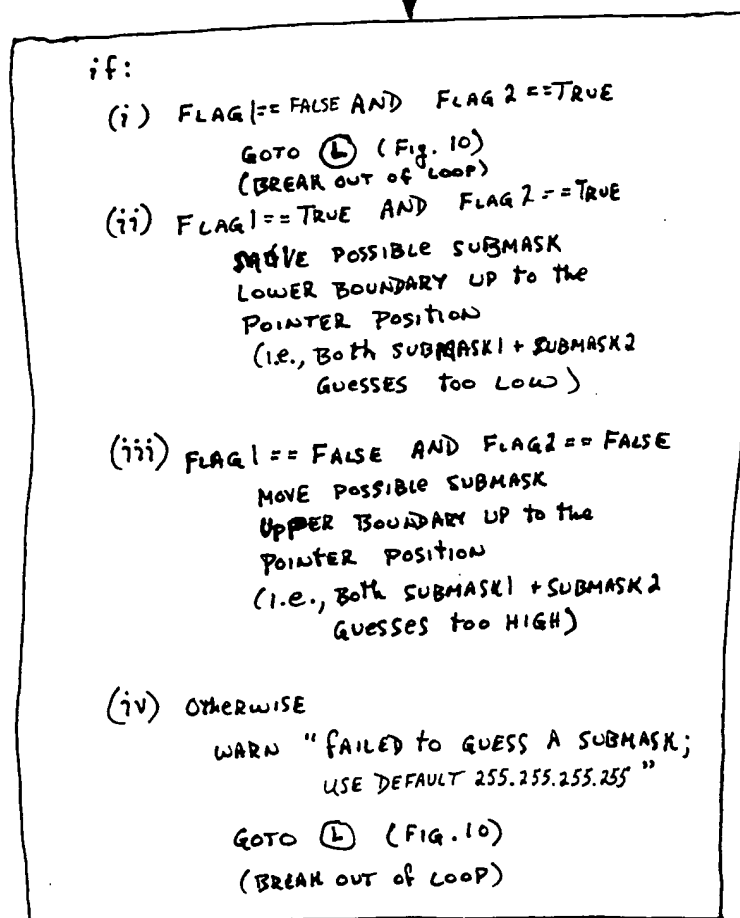 if:
(i) FLAG1 == FALSE AND FLAG2 == TRUE
GOTO (L) (Fig. 10)
(BREAK OUT of LOOP)
(ii) FLAG1 == TRUE AND FLAG2 == TRUE
MOVE POSSIBLE SUBMASK
LOWER BOUNDARY UP to the
POINTER POSITION
(i.e., Both SUBMASK1 + SUBMASK2
GUESSES too LOW)
(iii) FLAG1 == FALSE AND FLAG2 == FALSE
MOVE POSSIBLE SUBMASK
UPPER BOUNDARY UP to the
POINTER POSITION
(i.e., Both SUBMASK1 + SUBMASK2
GUESSES too HIGH)
(iv) OTHERWISE
WARN "FAILED to GUESS A SUBMASK;
USE DEFAULT 255.255.255.255"
GOTO (L) (FIG. 10)
(BREAK OUT of LOOP)